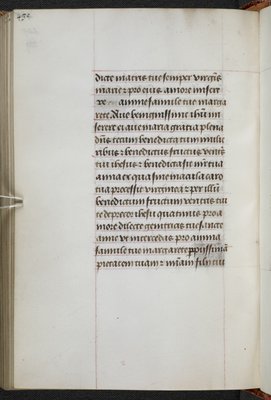 dicte matris tue semper virginis
marie & pro eius amore miserere
anime famule tue marga
rete. Ave benignissime ihesu mi
serere ei ave maria gratia plena
dns tecum benedicta tu in mulie
ribus & benedictus fructus ventris
tui ihesus & benedicta sit mr tua
anna ex qua sine macula caro
tua processit virginea & per illum
benedictum fructum ventris tui
te deprecor ihesu quatinus pro a
more dilecte genitricis tue sancte
anne ut miserearis pro anima
famule tue margarete
pietatem tuam & mam filii tui